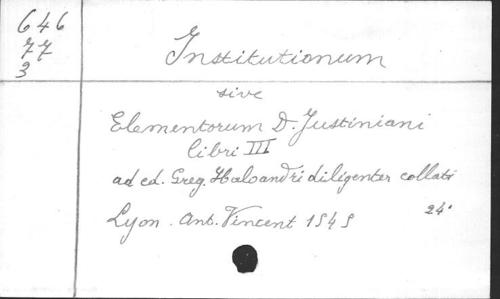 646
77
3
Institutionum
sive
Elementorum D. Justiniani
libri III
ad ed. Greg. Haloandri diligenter collati
Lyon. Ant. Vincent 1545 24°